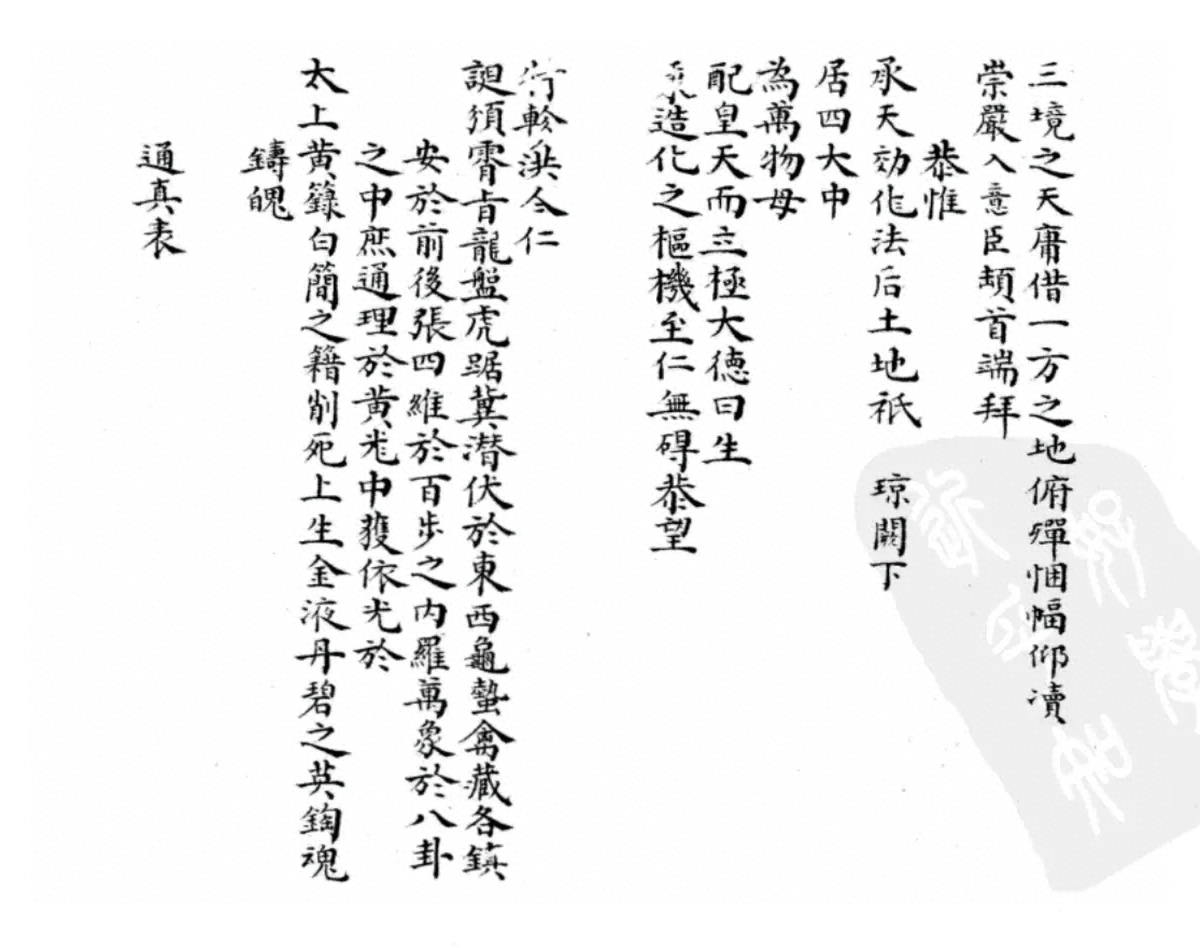 三境之天庸借一方之地俯殫悃愊仰瀆
崇嚴入意臣頡首端拜
恭惟
承天効化法后土地祇 琼闕下
居四大中
為萬物母
配皇天而立極大德曰生
造化之樞機至仁無碍恭望
軫洪仝仁
誕須霄旨龍盤虎踞冀潛伏於東西龜蟄禽藏各鎮
安於前後張四維於百步之内羅萬象於八卦
之中庶通理於黄光中獲依光於
太上黄籙白簡之籍削死上生金液丹碧之英鋾魂
鑄魄
通真表